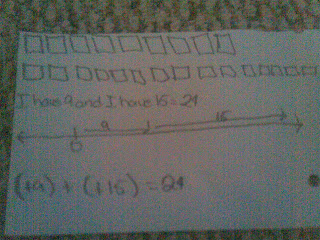 I have 9 and I have 15 = 24
9 15
0
(+9) + (+15) = 24